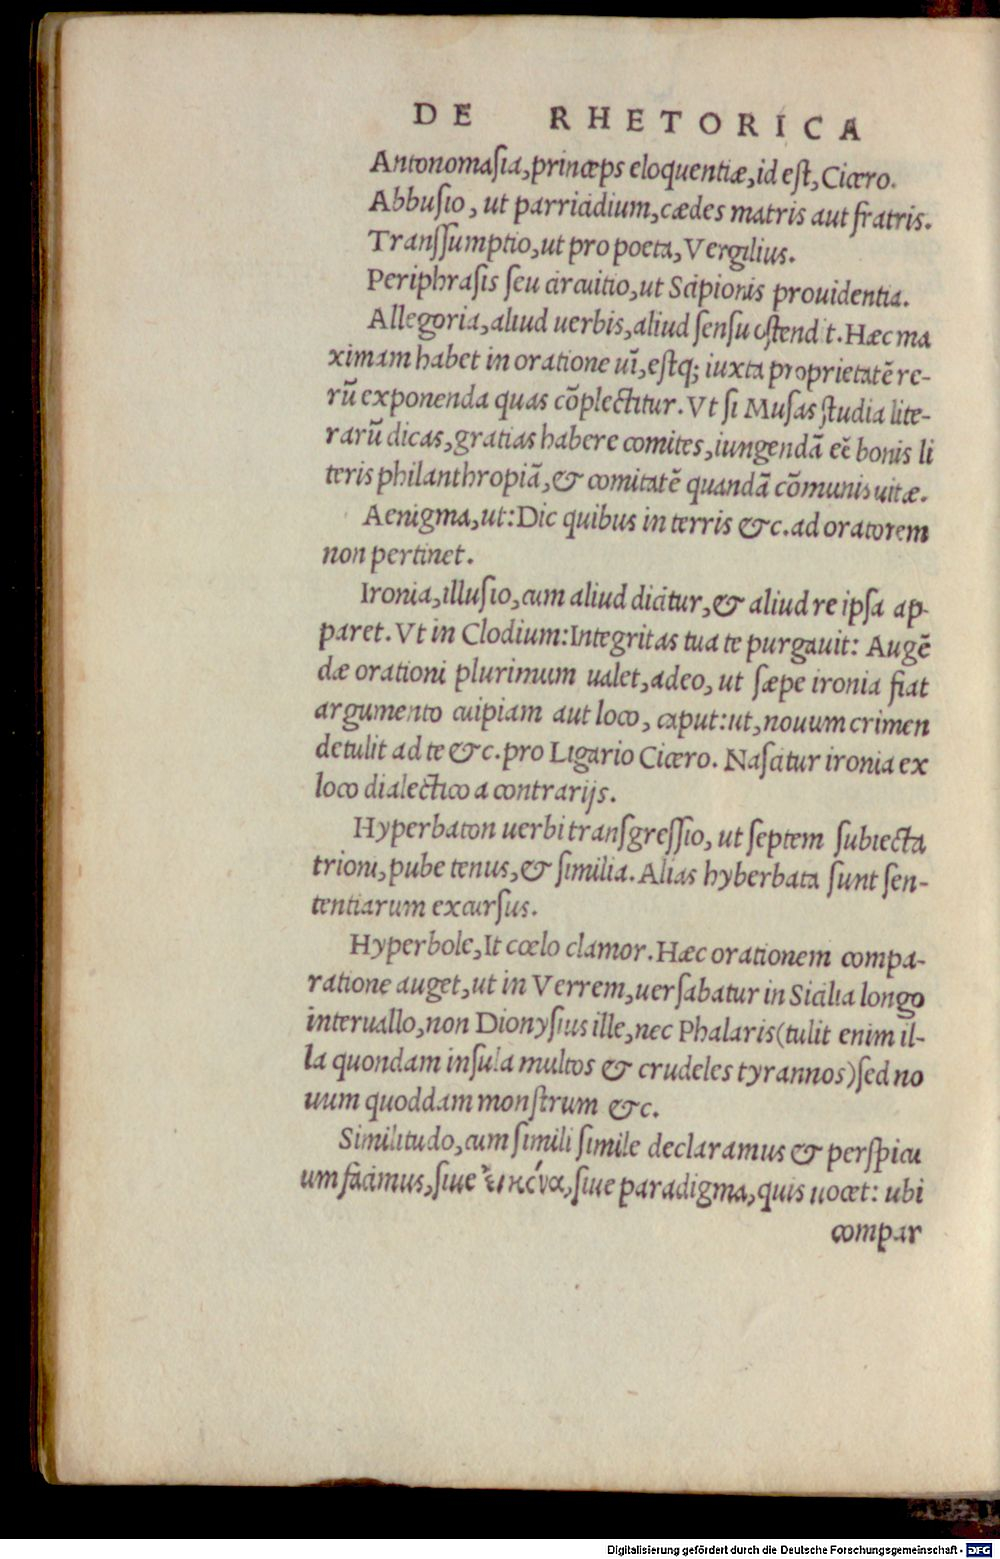 DE RHETORICA
Antonomaſia, princeps eloquentiæ, id eſt, Cicero.
Abbuſio, ut parricidium, cædes matris aut fratris.
Tranſſumptio, ut pro poeta, Vergilius.
Periphraſis ſeu circuitio, ut Scipionis prouidentia.
Allegoria, aliud uerbis, aliud ſenſu oſtendit. Hæc ma
ximam habet in oratione uī, eſtq; iuxta proprietatē re-
rū exponenda quas cōplectitur. Vt ſi Muſas ſtudia lite-
rarū dicas, gratias habere comites, iungendā eē bonis li
teris philanthropiā, & comitatē quandā cōmunis uitæ.
Aenigma, ut: Dic quibus in terris &c. ad oratorem
non pertinet.
Ironia, illuſio, cum aliud dicitur, & aliud re ipſa ap-
paret. Vt in Clodium: Integritas tua te purgauit: Augē
dæ orationi plurimum ualet, adeo, ut ſæpe ironia fiat
argumento cuipiam aut loco, caput: ut, nouum crimen
detulit ad te &c. pro Ligario Cicero. Naſcitur ironia ex
loco dialectico a contrarijs.
Hyperbaton uerbi tranſgreſſio, ut ſeptem ſubiecta
trioni, pube tenus, & ſimilia. Alias hyberbata ſunt ſen-
tentiarum excurſus.
Hyperbole, It cœlo clamor. Hæc orationem compa-
ratione auget, ut in Verrem, uerſabatur in Sicilia longo
interuallo, non Dionyſius ille, nec Phalaris (tulit enim il-
la quondam inſula multos & crudeles tyrannos) ſed no
uum quoddam monſtrum &c.
Similitudo, cum ſimili ſimile declaramus & perſpicu
um facimus, ſiue εἰκόνα, ſiue paradigma, quis uocet: ubi
compar
Digitalisierung gefördert durch die Deutsche Forschungsgemeinschaft - DFG